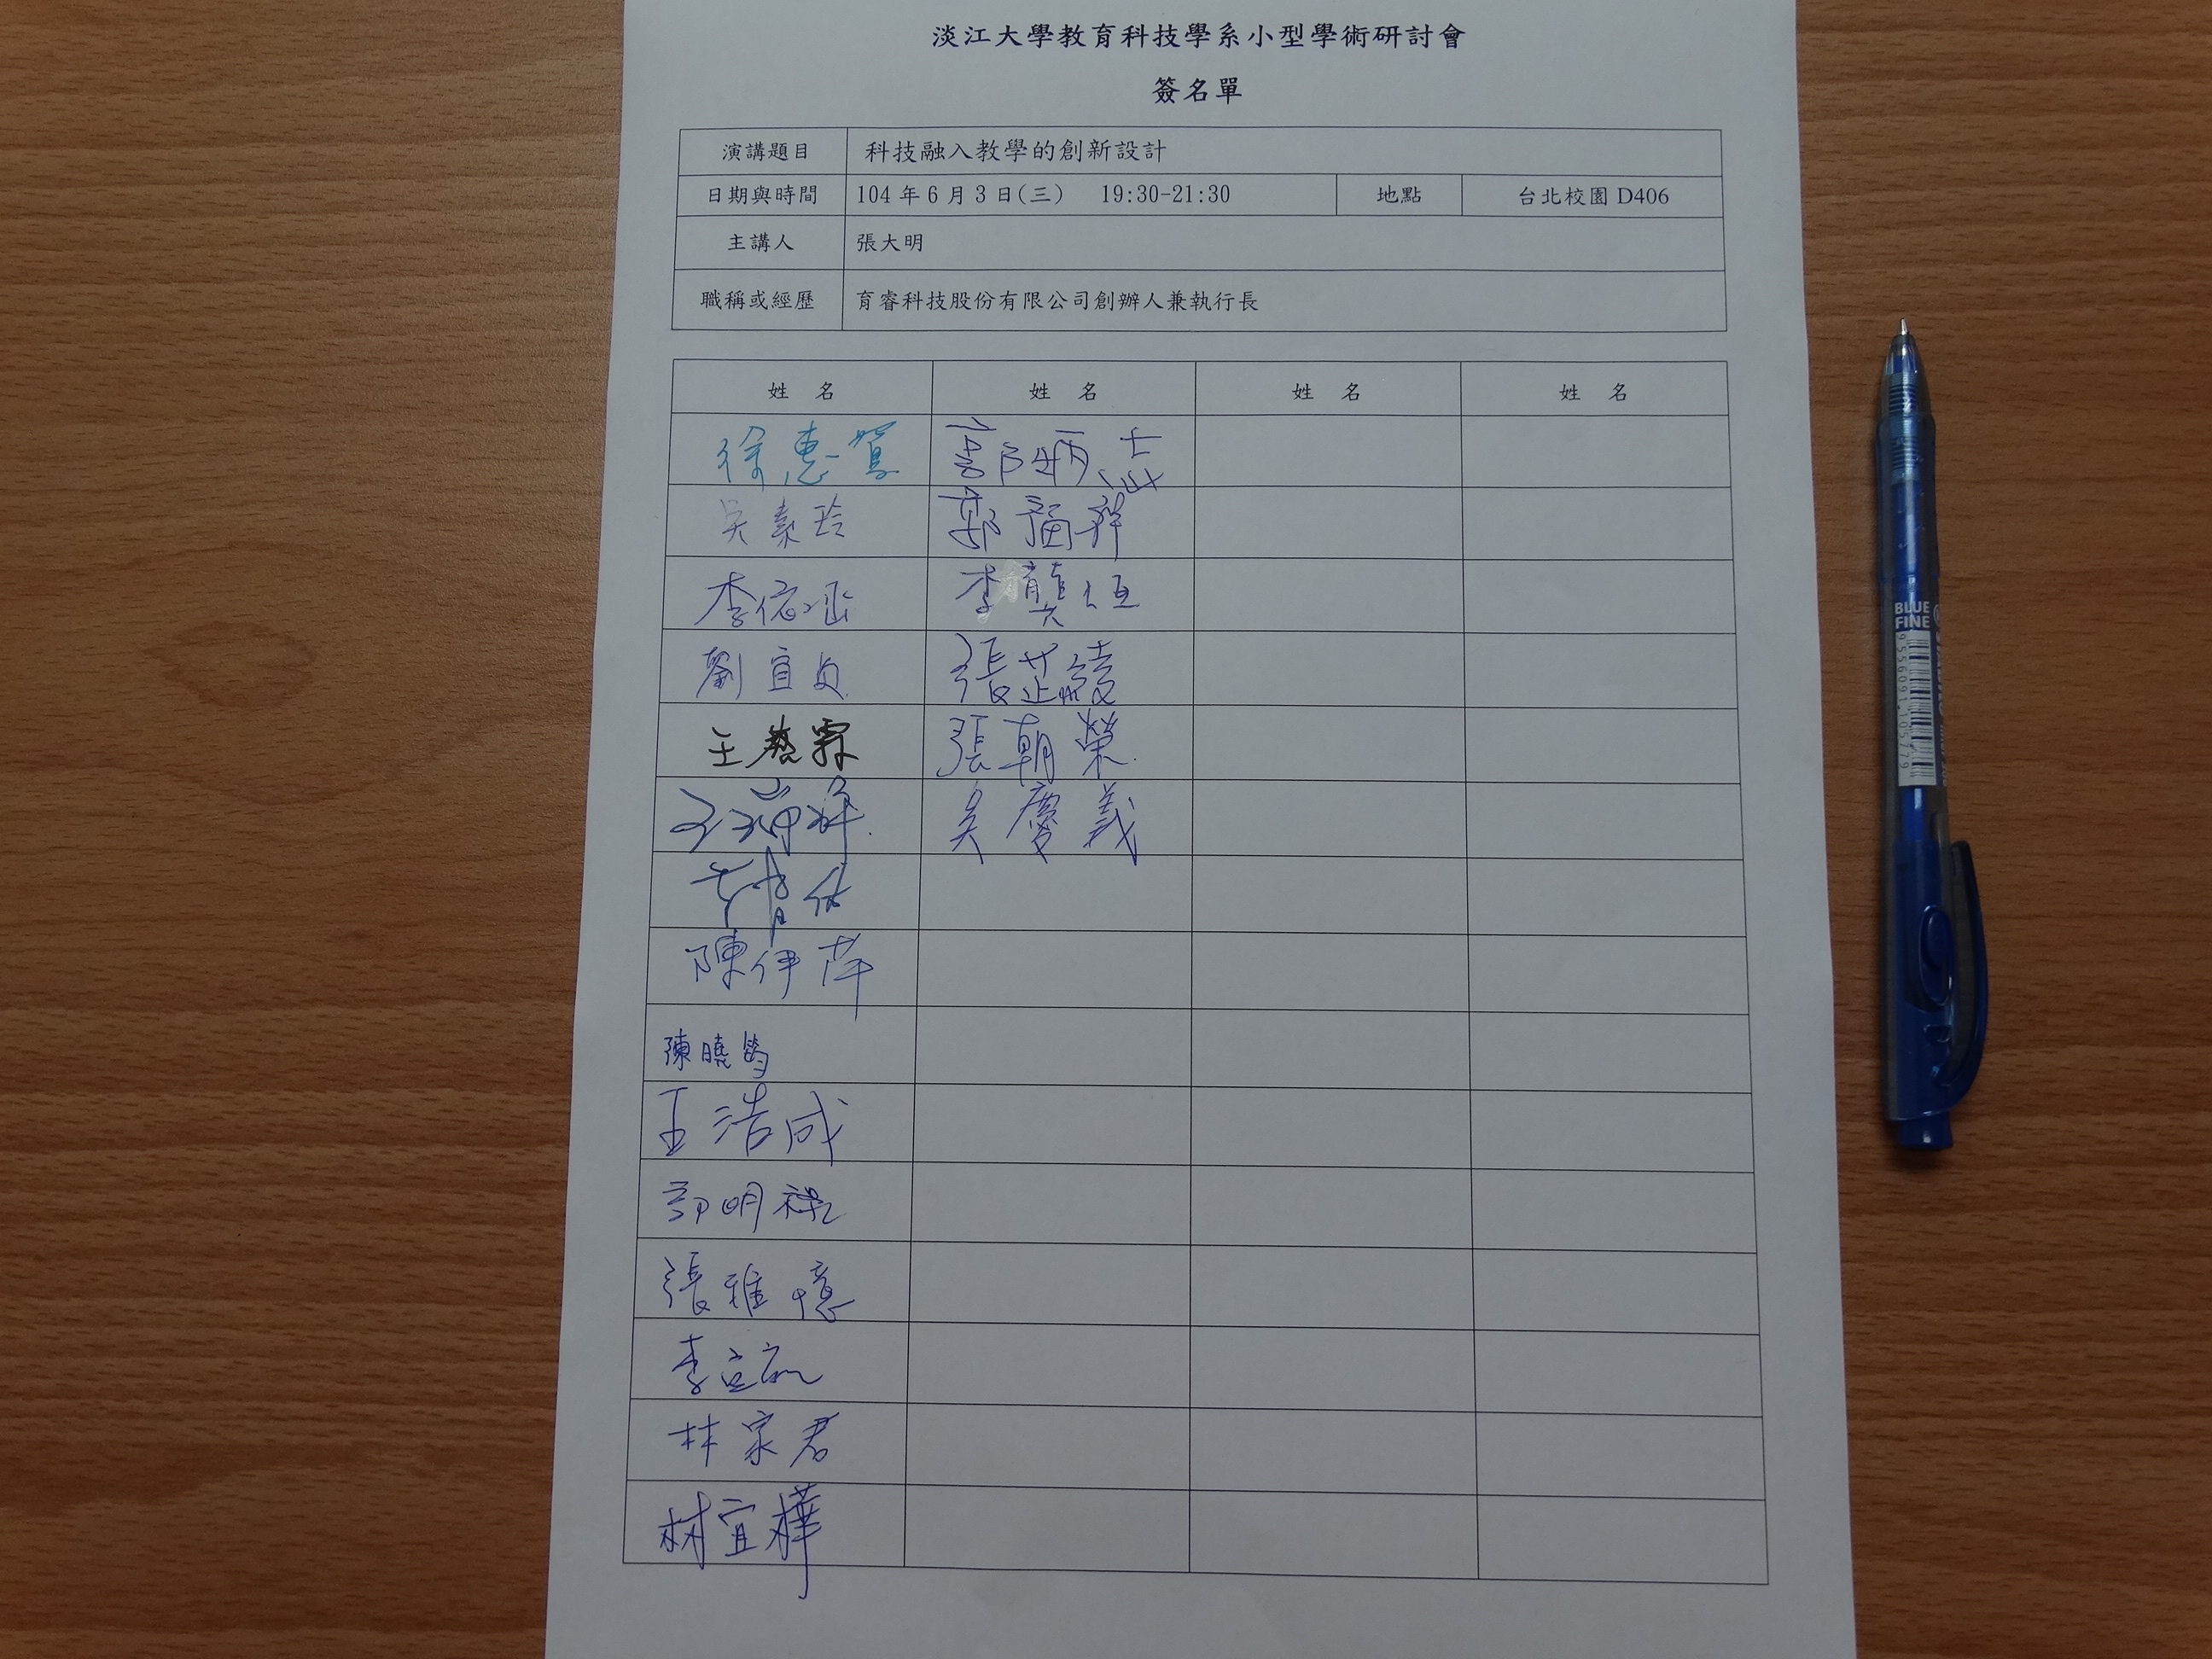 淡江大學教育科技學系小型學術研討會
簽名單
演講題目 科技融入教學的創新設計
日期與時間 104 年 6 月 3 日(三) 19:30-21:30 地點 台北校園 D406
主講人 張大明
職稱或經歷 育睿科技股份有限公司創辦人兼執行長
姓 名 姓 名 姓 名 姓 名
徐惠鴛 郭炳志
吳素玲 鄭福祥
李依 李龔恒
劉宜貞 張芷綾
王慈霖 張朝榮
吳慶義
陳伊萍
陳曉筠
王浩成
郭明
張雅憶
李宜
林家君
林宜樺
BLUE
FINE
9 556091 10577 9